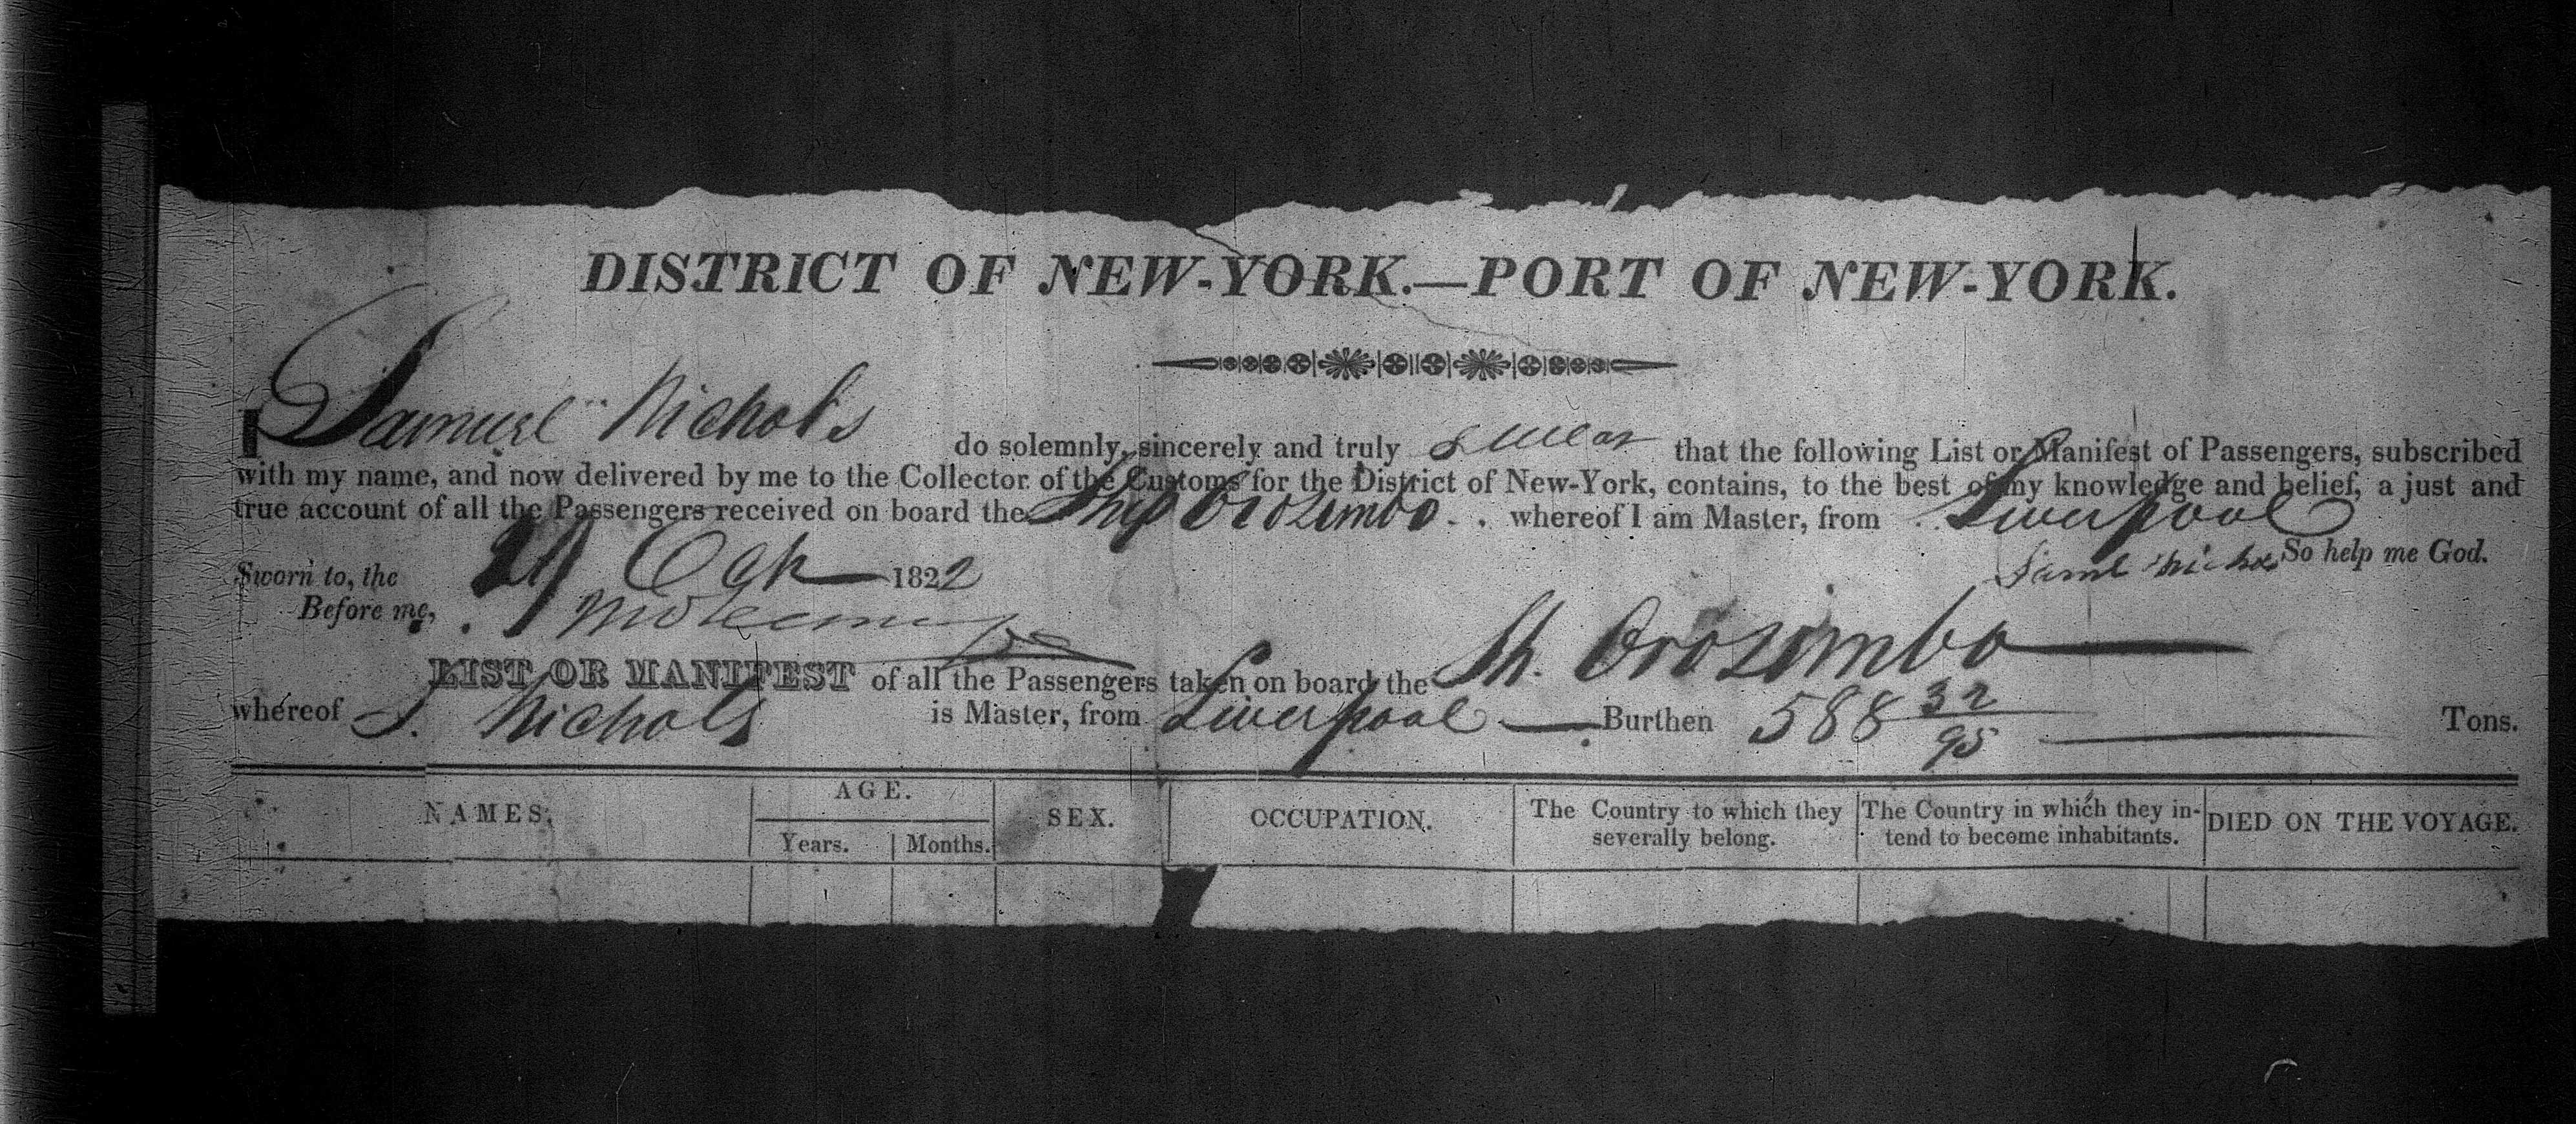 DISTRICT OF NEW-YORK.—PORT OF NEW-YORK.
I Samuel Nichols do solemnly, sincerely and truly swear that the following List or Manifest of Passengers, subscribed
with my name, and now delivered by me to the Collector of the Customs for the District of New-York, contains, to the best of my knowledge and belief, a just and
true account of all the Passengers received on board the Ship Orozimbo . . whereof I am Master, from Liverpool
So help me God.
Sworn to, the 29 Oct 1822 Saml Nichols
Before me,
LIST OR MANIFEST of all the Passengers taken on board the Sh. Orozimbo
whereof S. Nichols is Master, from Liverpool — Burthen 588 32/95 Tons.
NAMES. AGE. Years. Months. SEX. OCCUPATION. The Country to which they severally belong. The Country in which they intend to become inhabitants. DIED ON THE VOYAGE.